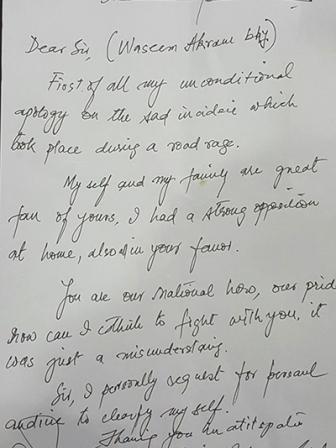 Dear Sir, (Waseem Akram bhj.)
First of all my unconditional
apology on the sad incideie which
took place during a road rage.
My self and my family are great
fan of yours, I had a strong opposition
at home, also in your favor.
You are our National hero, our prid
how can I think to fight with you, it
was just a misunderstaing.
Sir, I personly request for persoual
andine to clearfy my self.
Thanking you in antispatio